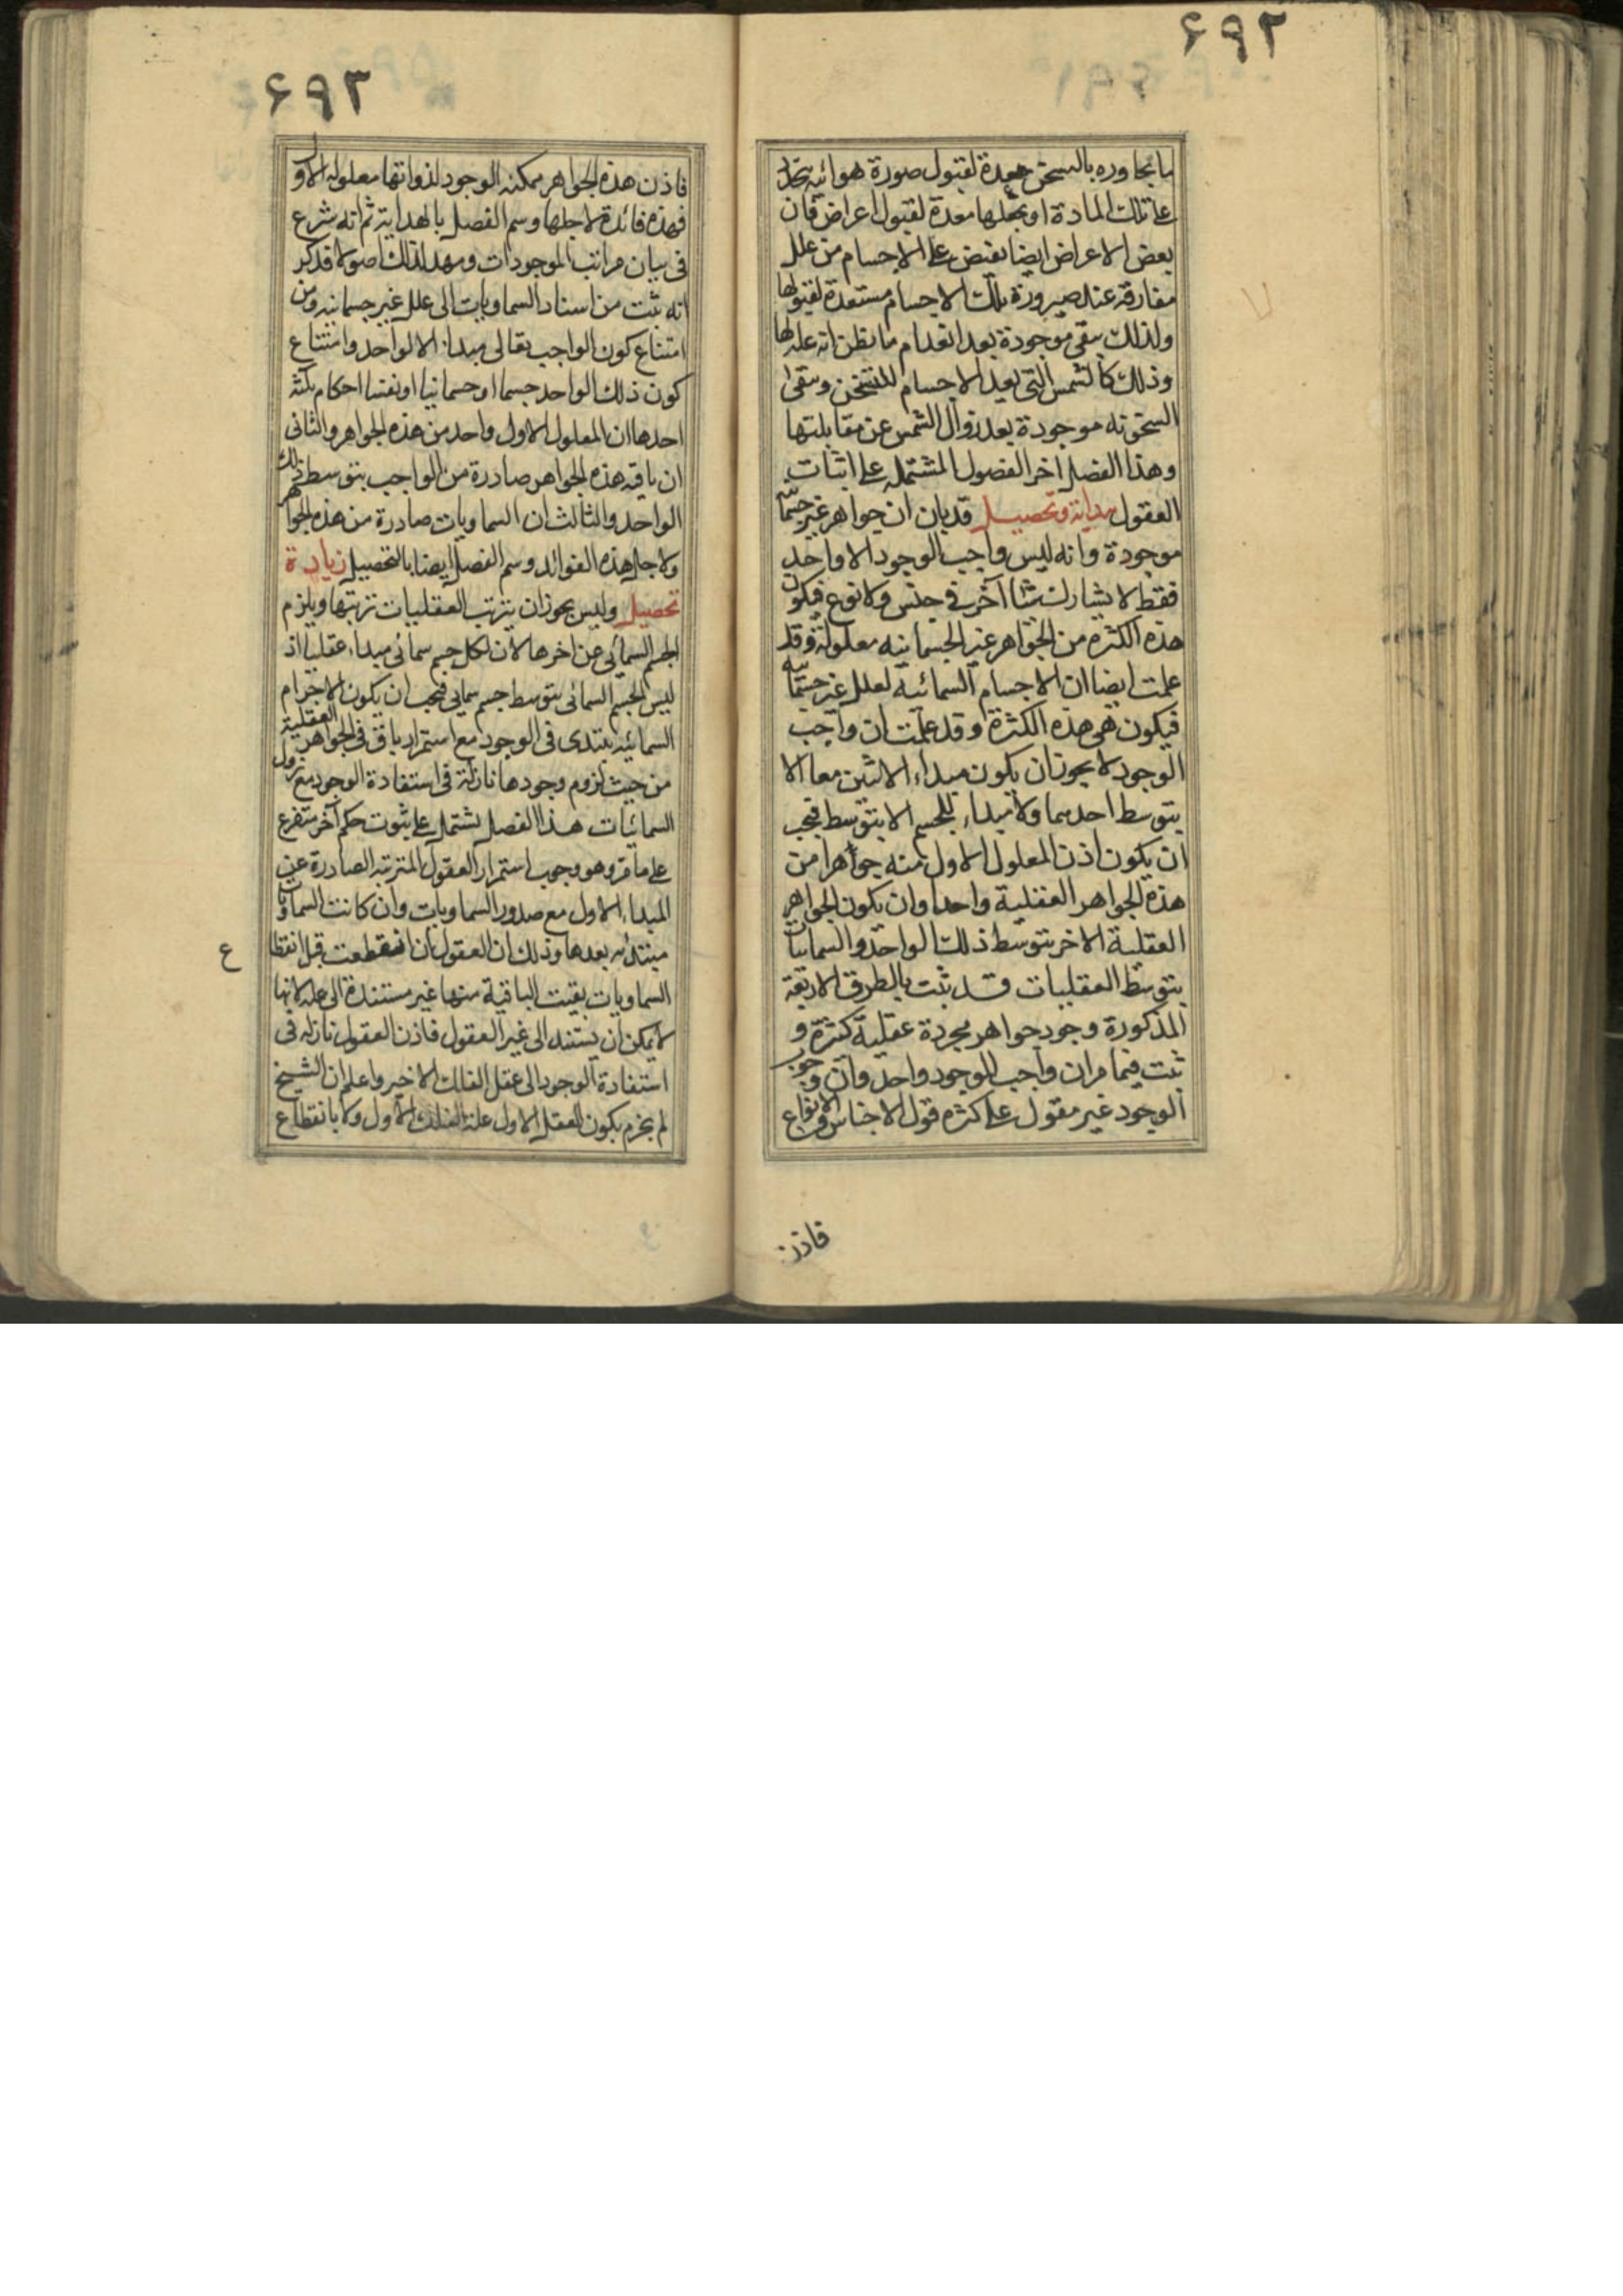 ۶۹۲
ما يجاوره بالتسخن معدة لقبول صورة هوائية تتجدد
على تلك المادة او يجعلها معدة لقبول اعراض فان
بعض الاعراض ايضا يفيض على الاجسام من علل
مفارقة عند صيرورة تلك الاجسام مستعدة لقبولها
ولذلك يبقى موجودة بعد انعدام ما يظن انه علة لها
وذلك كالشمس التي يعد الاجسام للتسخن ويبقى
السخونة موجودة بعد زوال الشمس عن مقابلتها
وهذا الفصل اخر الفصول المشتملة على اثبات
العقول هداية وتحصيل قد بان ان جواهر غير جسمانية
موجودة وانه ليس واجب الوجود الا واحد
فقط لا يشارك شيئا آخر في جنس ولا نوع فيكون
هذه الكثرة من الجواهر غير الجسمانية معلولة وقد
علمت ايضا ان الاجسام السمائية لعلل غير جسمانية
فيكون هي هذه الكثرة وقد علمت ان واجب
الوجود لا يجوز ان يكون مبداء الاثنين معا الا
بتوسط احدهما ولا مبداء للجسم الا بتوسط فيجب
ان يكون اذن المعلول الاول منه جواهرا من
هذه الجواهر العقلية واحدا وان يكون الجواهر
العقلية الاخر بتوسط ذلك الواحد والسمائيات
بتوسط العقليات قد ثبت بالطرق الاربعة
المذكورة وجود جواهر مجردة عقلية كثيرة و
ثبت فيما مر ان واجب الوجود واحد وان وجوب
الوجود غير مقول على كثرة قول الاجناس والانواع
فاذن
۶۹۳
فاذن هذه الجواهر ممكنة الوجود لذواتها معلولة الاول
فهذه فائدة لاجلها وسم الفصل بالهداية ثم انه شرع
في بيان مراتب الموجودات ومهد لذلك اصولا فذكر
انه ثبت من اسناد السماويات الى علل غير جسمانية ومن
امتناع كون الواجب تعالى مبداء الا لواحد وامتناع
كون ذلك الواحد جسما او جسمانيا او نفسا احكام ثلثة
احدها ان المعلول الاول واحد من هذه الجواهر والثاني
ان باقية هذه الجواهر صادرة من الواجب بتوسط ذلك
الواحد والثالث ان السماويات صادرة من هذه الجواهر
ولاجل هذه الفوائد وسم الفصل ايضا بالتحصيل زيادة
تحصيل وليس يجوز ان يترتب العقليات ترتبها ويلزم
الجسم السمائي عن اخرها لان لكل جسم سمائي مبداء عقليا اذ
ليس الجسم السمائي بتوسط جسم سمايي فيجب ان يكون الاجرام
السمائية يبتدى في الوجود مع استمرار باق في الجواهر العقلية
من حيث لزوم وجودها نازلة في استفادة الوجود مع نزول
السمائيات هذا الفصل يشتمل على ثبوت حكم آخر متفرع
على ما مر وهو وجوب استمرار العقول المترتبة الصادرة عن
المبداء الاول مع صدور السماويات وان كانت السماويات
مبتدئة بعدها وذلك ان العقول بان انقطعت قبل انقطا
ع
السماويات بقيت الباقية منها غير مستندة الى علة لانها
لا يمكن ان يستند الى غير العقول فاذن العقول نازلة في
استفادة الوجود الى عقل الفلك الاخير واعلم ان الشيخ
لم يجزم بكون العقل الاول علة الفلك الاول ولا بانقطاع